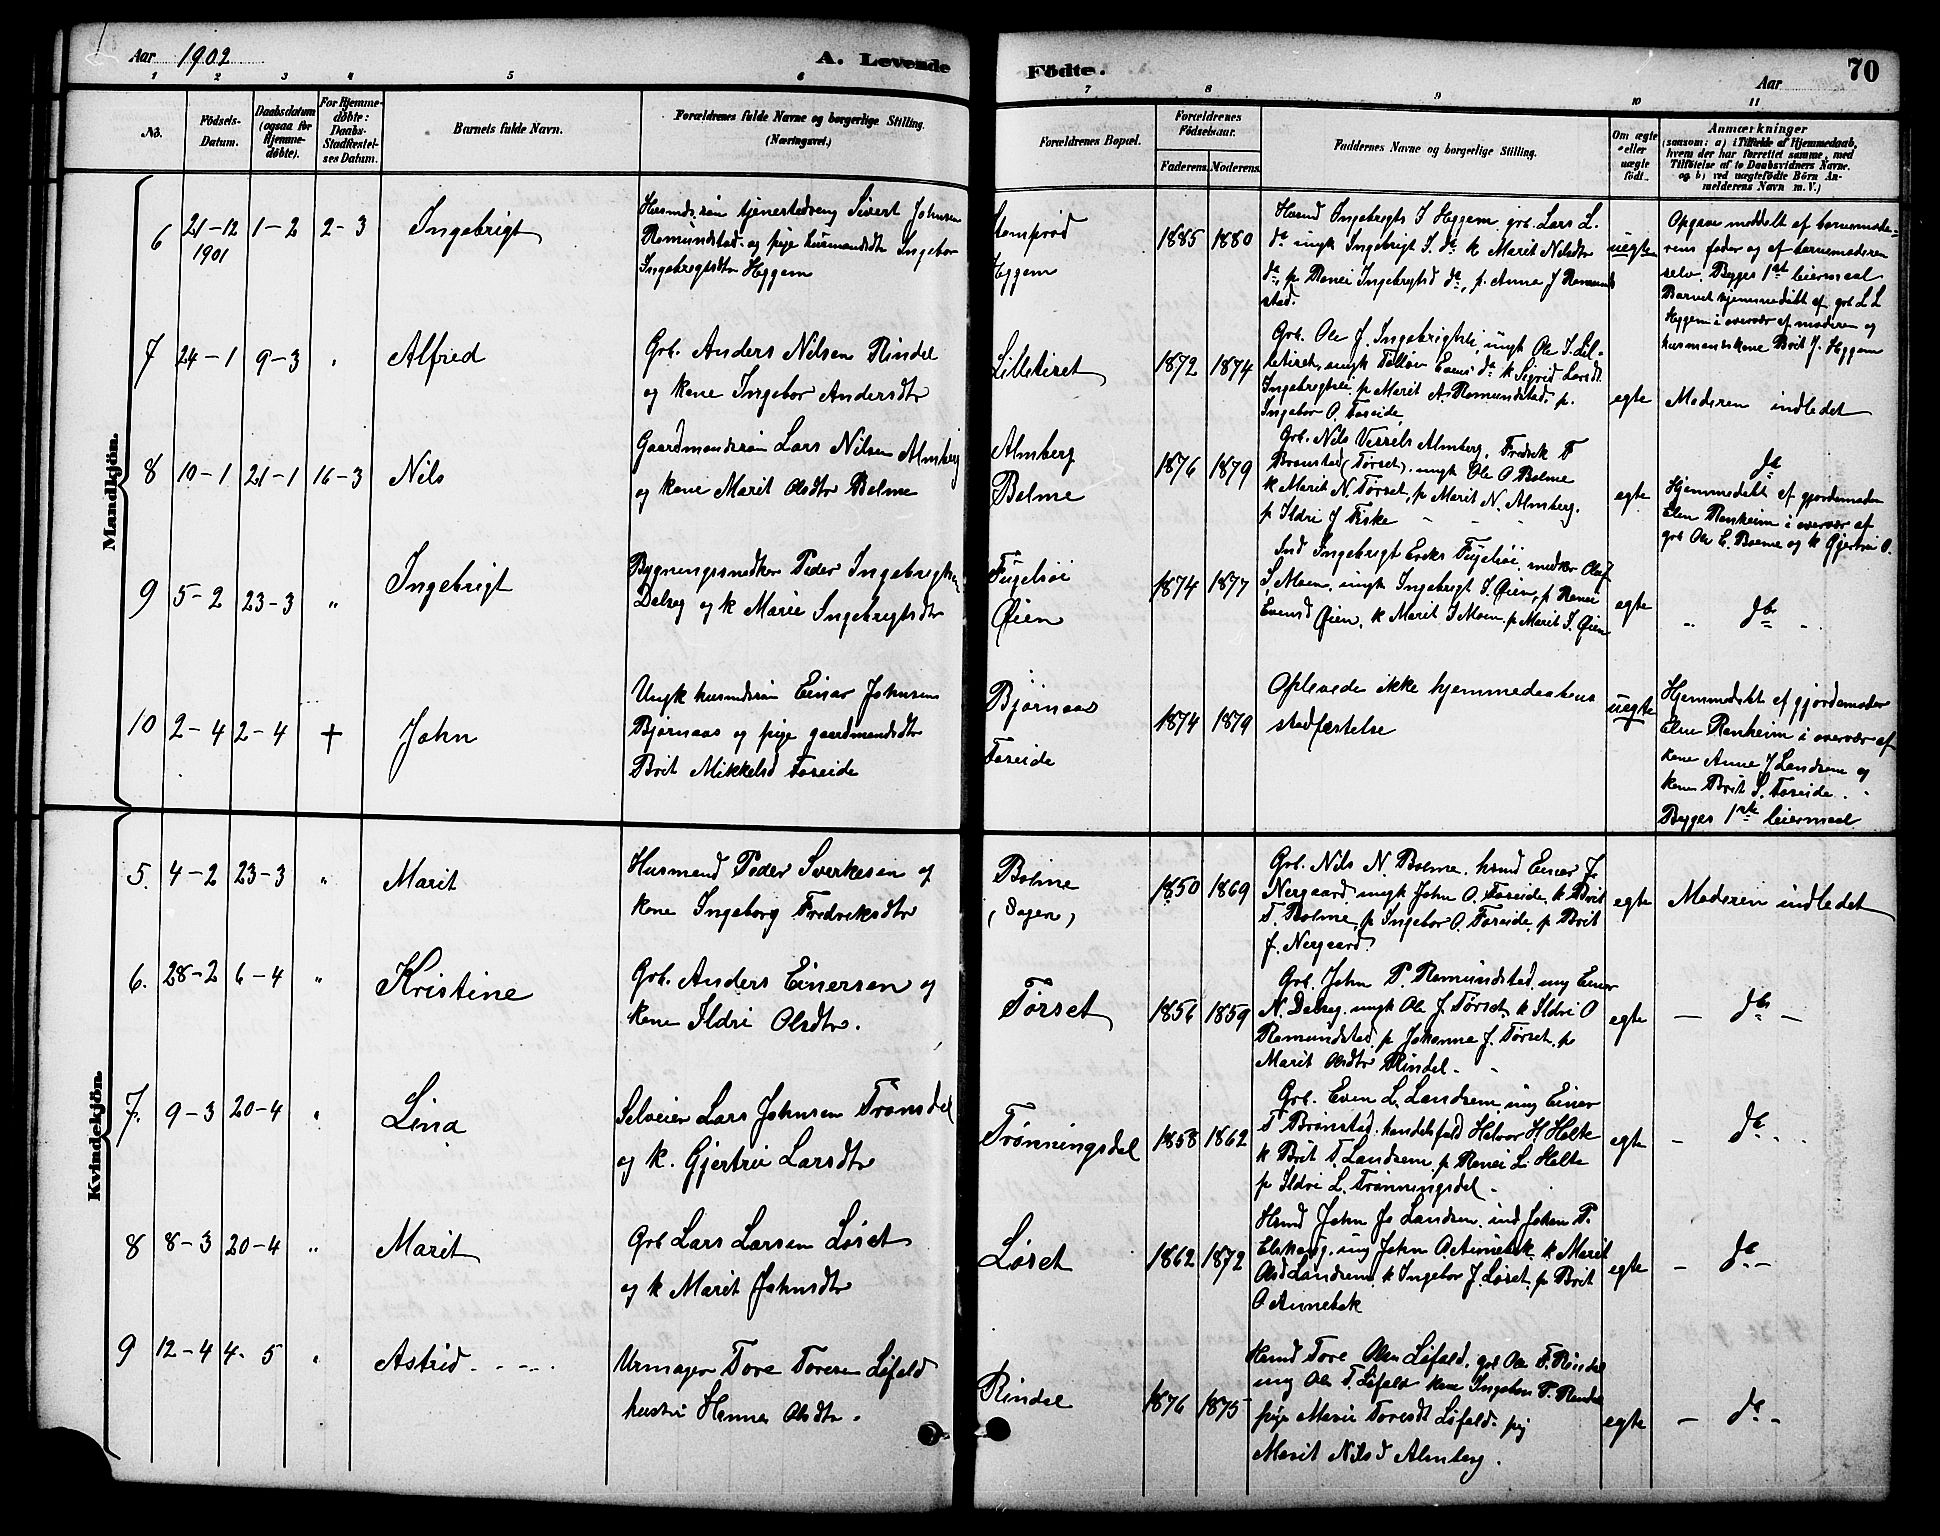 Aar 1902
A. Levende
Födte.
Aar
70
1 2 3 4 5 6 7 8 9 10 11
No.
Födsels-
Datum.
Daabsdatum
(ogsaa for
Hjemme-
döbte).
For Hjemme-
döbte:
Daabs-
Stadfæstel-
ses Datum.
Barnets fulde Navn.
Forældrenes fulde Navne og borgerlige Stilling.
(Næringsvei.)
Forældrenes Bopæl.
Forældrenes
Födselsaar.
Faderens. Moderens.
Faddernes Navne og borgerlige Stilling.
Om ægte
eller
uægte
födt.
Anmærkninger
(saasom: a) i Tilfælde af Hjemmedaab,
hvem der har forrettet samme, med
Tilföielse af to Daabsvidners Navne.
og b) ved uægtefödte Börn An-
melderens Navn m. V.)
Mandkjön.
6 21-12 1901 1-2 2-3 Ingebrigt
Husmdssøn tjenestedreng Sivert Johnsen
Romundstad og pige husmandsdtr Ingebor
Ingebrigtsdtr Heggem
Heggem
1885 1880
Husmd Ingebrigt I Heggem, grb. Lars L.
do ungk Ingebrigt I. do k Marit Nilsdtr
do, p Renei Ingebrigtsd do, p. Anne J Romund
stad.
uegte
Opgave meddelt af barnemode-
rens fader og af barnemoderen
selv. Begges 1ste leiermaal
Barnet hjemmedøbt af grb L L
Heggem i overvær af moderen og
husmandskone Brit J. Heggem
7 24-1 9-3 " Alfred
Grb. Anders Nilsen Rindal
og kone Ingebor Andersdtr
Lilletiset
1872 1874
Grb. Ole J. Ingebrigtsli, ungk Ole I. Lil-
letiset, ungk Tollov Evens do k Sigrid Larsdt
Ingebrigtsli p Marit A. Romundstad p.
Ingebor O. Foseide
egte
Moderen indledet
8 10-1 21-1 16-3 Nils
Gaardmandssøn Lars Nilsen Almberg
og kone Marit Olsdtr Bolme
Almberg
Bolme
1876 1879
Grb. Nils Almberg, Fredrik F
Brønstad (Tørset), ungk Ole O Bolme
k Marit N. Tørset, p Marit N. Almberg.
p Ildri J Fiske
egte
do
Hjemmedøbt af gjordemoder
Elen Renheim i overvær af
grb Ole E. Bolme og k Gjertrui O.
9 5-2 23-3 " Ingebrigt
Bygningssnedker Peder Ingebrigtsen
Dalseg og k Marie Ingebrigtsdtr
Fugelsøi
Øien
1874 1877
Ind Ingebrigt Fugelsøi, snedker Oluf
I. Moen, ungk Ingebrigt I. Øien, p Renei
Evensd Øien, k Marit I Moen, p Marit I. Øien
egte
" do "
10 2-4 2-4 + John
Ungk husmdssøn Einar Johnsen
Bjørnaas og pige gaardmandsdtr
Brit Mikkelsd Foseide
Bjørnaas
Foseide
1874 1879
Oplevede ikke hjemmedaabens
stadfæstelse
uegte
Hjemmedøbt af gjordemoder
Elen Renheim i overvær af
kone Anne J Landsem og
kone Brit S. Foseide.
Begges 1ste leiermaal
Kvindekjön.
5. 4-2 23-3 " Marit
Husmand Peder Sverkesen og
kone Ingeborg Fredriksdtr
Bolme
1850 1869
Grb. Nils N. Bolme, husmd Einar J.
Nergaard, ungk John O. Foseide, k Brit
T. Bolme, p Ingebor O. Foseide, p Brit
J. Nergaard.
egte
Moderen indledet
6. 28-2 6-4 " Kristine
Grb. Anders Einersen og
kone Ildri Olsdtr.
Tørset
1856 1859
Grb. John P. Romundstad, ung Einar
N. Dalseg, ungk Ole J. Tørset, k Ildri O
Romundstad, p Johanna J. Tørset, p
Marit Olsdtr Rindal -
egte
- do -
7. 9-3 20-4 " Lina
Selveier Lars Johnsen Trønsdal
og k. Gjertrui Larsdtr
Trønningsdal
1858 1862
Grb. Even L. Landsem, ung Einar
T Brønstad, handelsfuld Halvor H Holte
k Brit T. Landsem, p Renei L. Holte
p Ildri L. Trønningsdal -
egte
- do -
8 8-3 20-4 " Marit
Grb Lars Larsen Løset
og k Marit Johnsdtr
Løset
1862 1872
Husmd John Landsem, ind Johan P.
ung John O. Aunebak k Marit
Olsd Landsem, k Ingebor J. Løset, p Brit
O Aunebak
egte
- do -
9 12-4 4-5 " Astrid
Urmager Tore Toresen Løfald
hustru Hanna Olsdtr.
Rindal
1876 1875
Husmd Tore Olsen Løfald, grb Ole T. Rindal
ung Ole T. Løfald kone Ingebor T. Rindal
pige Marie Toresdt Løfald, pig
Marit Nilsd Almberg.
egte
- do -